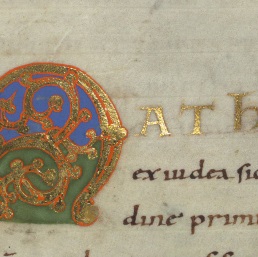 MATh
ex iudea sic
dine prim